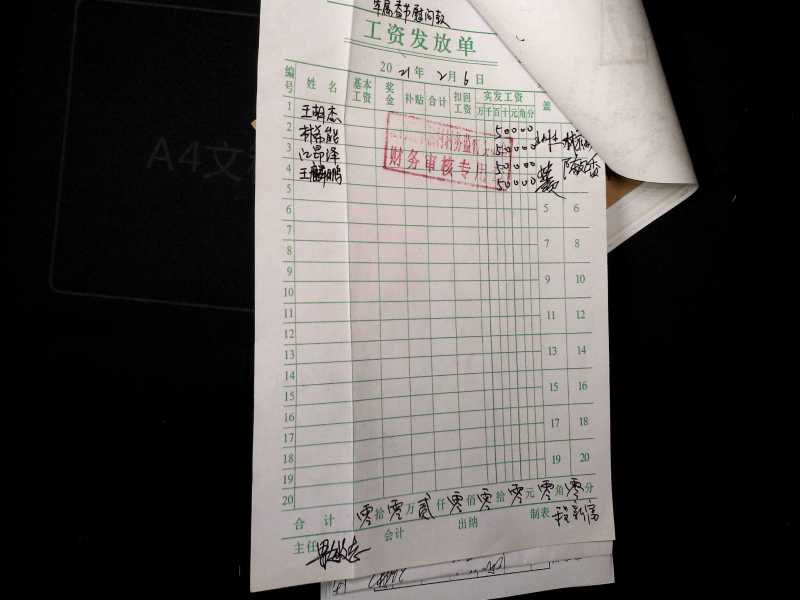 军属春节慰问款
工资发放单
2021年2月6日
编号 姓名 基本工资 奖金 补贴 合计 扣回工资 实发工资 盖
万千百十元角分
1 王柏杰 50000
2 林希能 50000
3 江昂泽 50000
4 王麟鹏 50000
财务审核专用
5 5 6
6
7 7 8
8
9 9 10
10
11 11 12
12
13 13 14
14
15 15 16
16
17 17 18
18
19 19 20
20
合计 零拾零万贰仟零佰零拾零元零角零分
主任 会计 出纳 制表
A4文